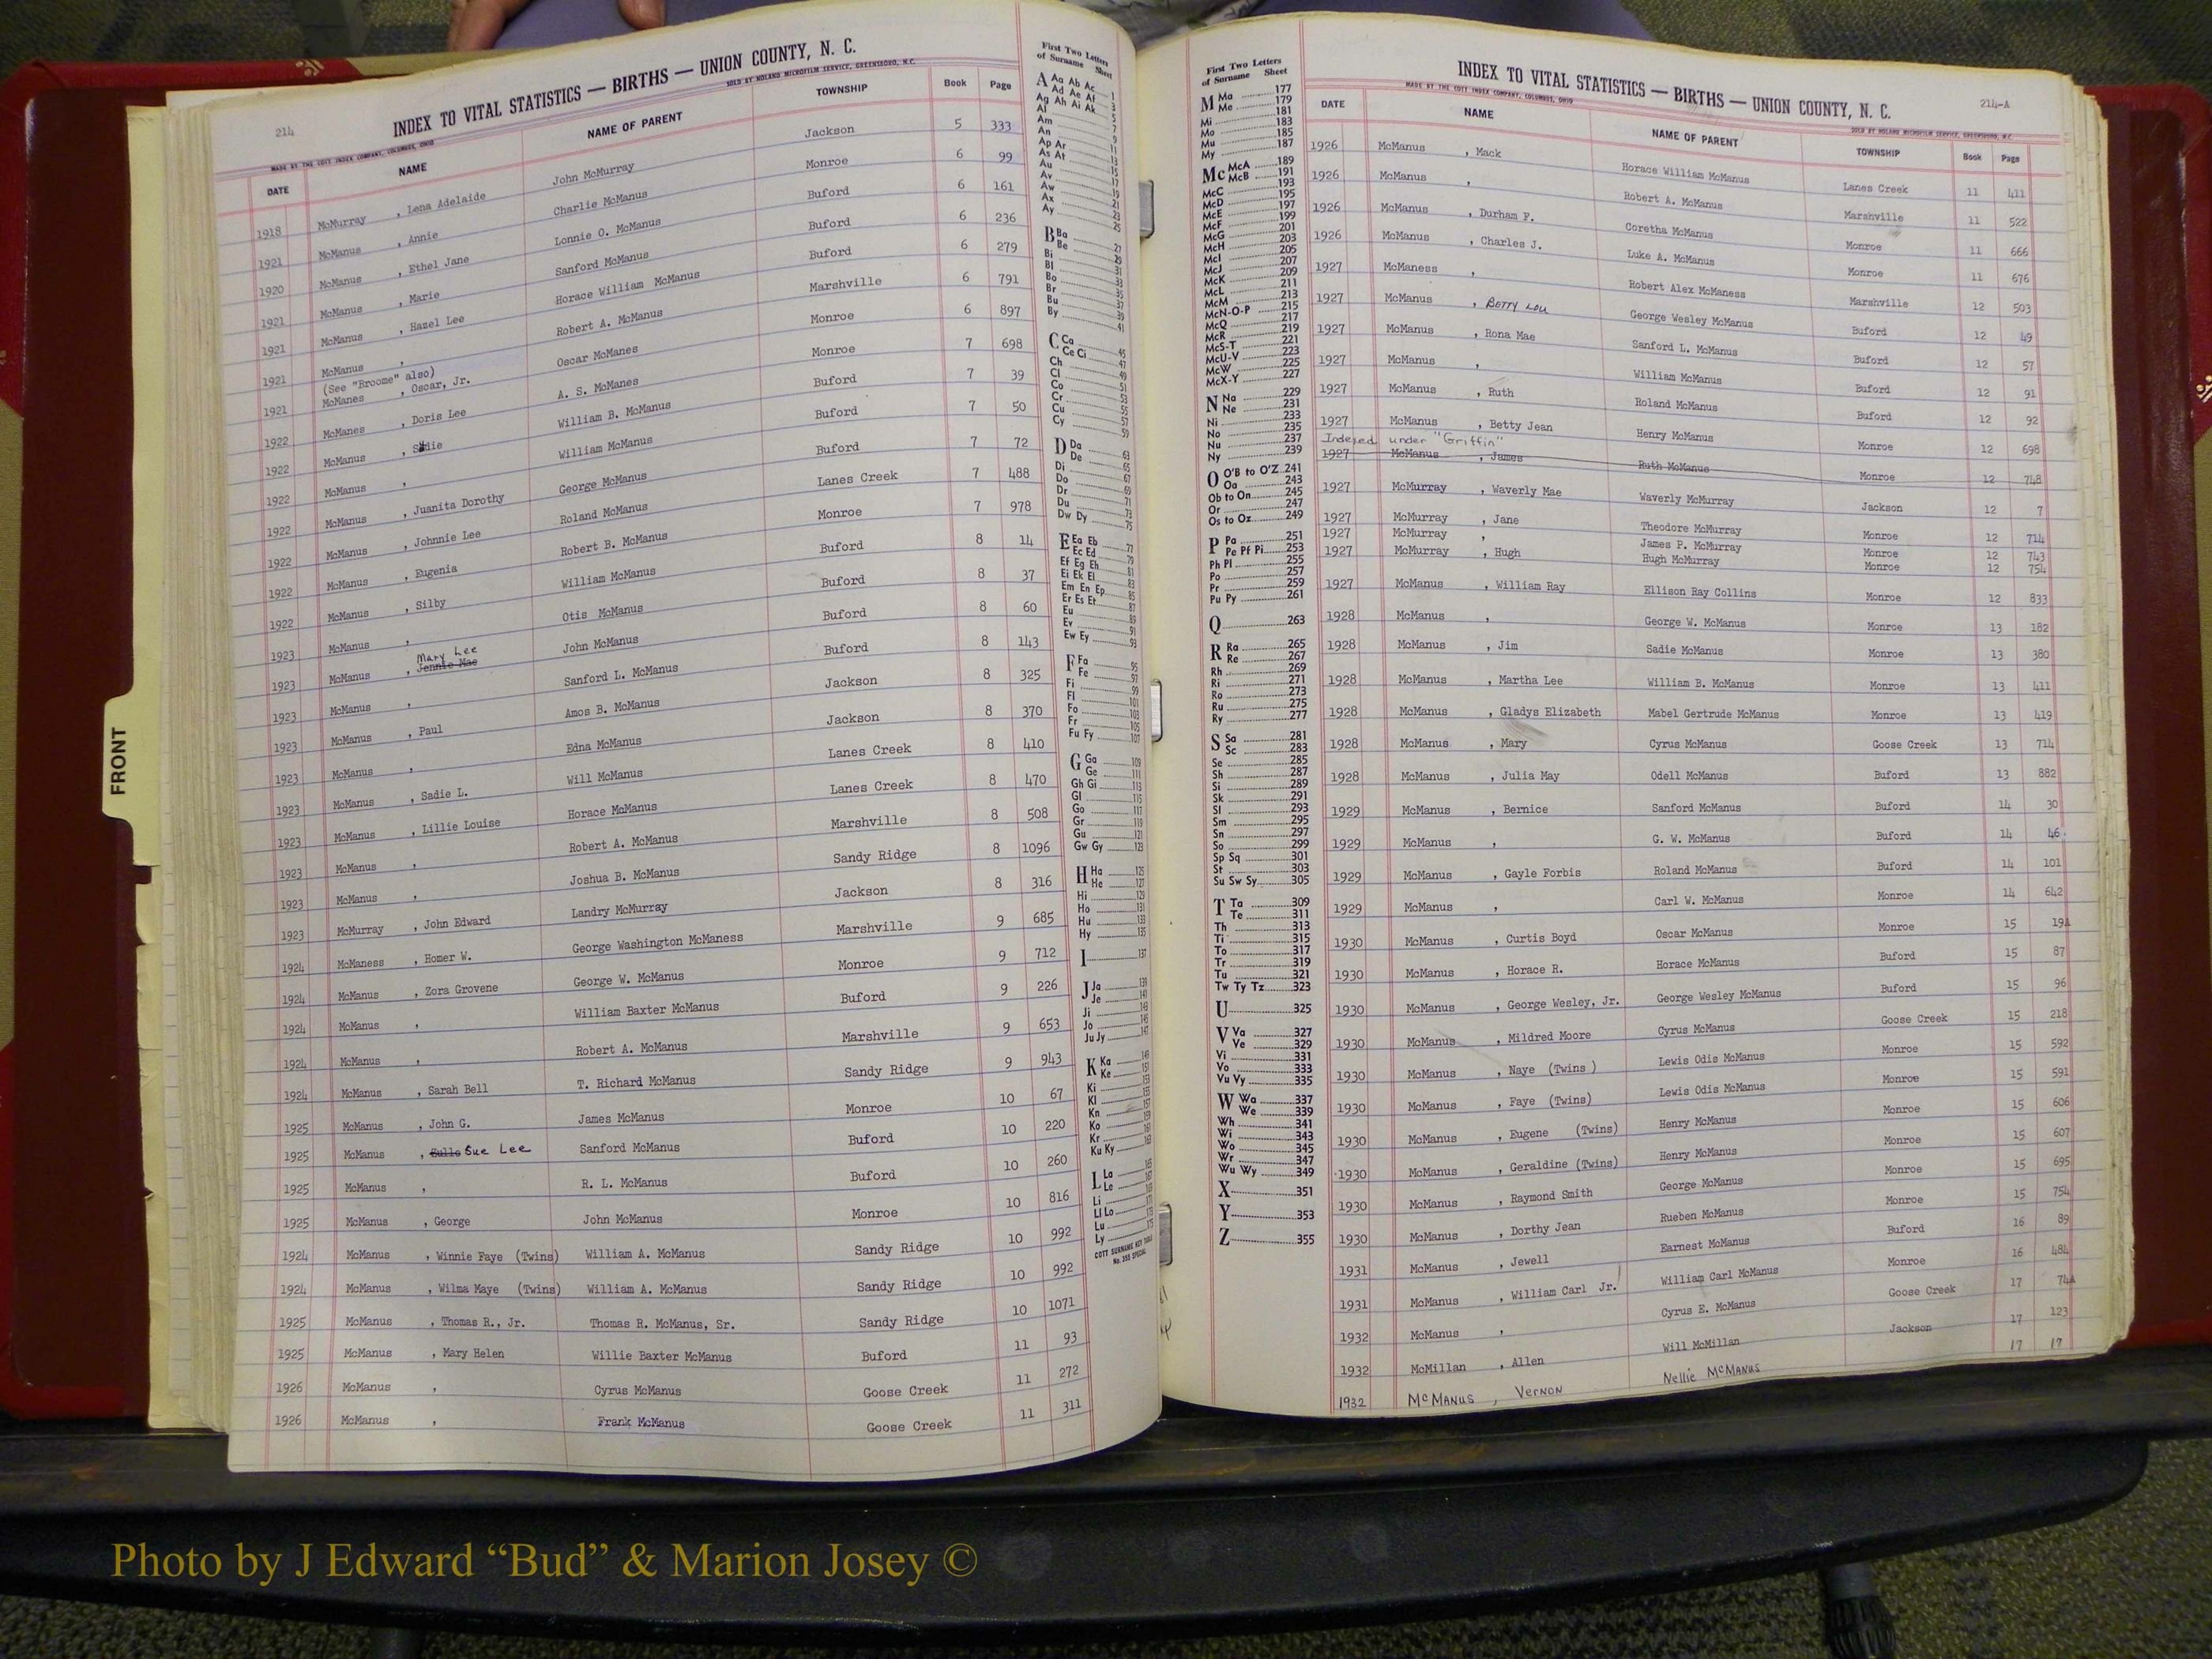 214
INDEX TO VITAL STATISTICS — BIRTHS — UNION COUNTY, N. C.
MADE BY THE COTT INDEX COMPANY, COLUMBUS, OHIO SOLD BY NOLAND MICROFILM SERVICE, GREENSBORO, N.C.
DATE NAME NAME OF PARENT TOWNSHIP Book Page
1918 McMurray , Lena Adelaide John McMurray Jackson 5 333
1921 McManus , Annie Charlie McManus Monroe 6 99
1920 McManus , Ethel Jane Lonnie O. McManus Buford 6 161
1921 McManus , Marie Sanford McManus Buford 6 236
1921 McManus , Hazel Lee Horace William McManus Buford 6 279
1921 McManus , Robert A. McManus Marshville 6 791
(See "Broome" also)
1921 McManes , Oscar, Jr. Oscar McManes Monroe 6 897
1922 McManes , Doris Lee A. S. McManes Monroe 7 698
1922 McManus , Sadie William B. McManus Buford 7 39
1922 McManus , William McManus Buford 7 50
1922 McManus , Juanita Dorothy George McManus Buford 7 72
1922 McManus , Johnnie Lee Roland McManus Lanes Creek 7 488
1922 McManus , Eugenia Robert B. McManus Monroe 7 978
1922 McManus , Silby William McManus Buford 8 14
1923 McManus , Otis McManus Buford 8 37
Mary Lee
1923 McManus , Jennie Mae John McManus Buford 8 60
1923 McManus , Sanford L. McManus Buford 8 143
1923 McManus , Paul Amos B. McManus Jackson 8 325
1923 McManus , Edna McManus Jackson 8 370
1923 McManus , Sadie L. Will McManus Lanes Creek 8 410
1923 McManus , Lillie Louise Horace McManus Lanes Creek 8 470
1923 McManus , Robert A. McManus Marshville 8 508
1923 McManus , Joshua B. McManus Sandy Ridge 8 1096
1923 McMurray , John Edward Landry McMurray Jackson 8 316
1924 McManess , Homer W. George Washington McManess Marshville 9 685
1924 McManus , Zora Grovene George W. McManus Monroe 9 712
1924 McManus , William Baxter McManus Buford 9 226
1924 McManus , Robert A. McManus Marshville 9 653
1924 McManus , Sarah Bell T. Richard McManus Sandy Ridge 9 943
1925 McManus , John G. James McManus Monroe 10 67
1925 McManus , Sue Lee Sanford McManus Buford 10 220
1925 McManus , R. L. McManus Buford 10 260
1925 McManus , George John McManus Monroe 10 816
1924 McManus , Winnie Faye (Twins) William A. McManus Sandy Ridge 10 992
1924 McManus , Wilma Maye (Twins) William A. McManus Sandy Ridge 10 992
1925 McManus , Thomas R., Jr. Thomas R. McManus, Sr. Sandy Ridge 10 1071
1925 McManus , Mary Helen Willie Baxter McManus Buford 11 93
1926 McManus , Cyrus McManus Goose Creek 11 272
1926 McManus , Frank McManus Goose Creek 11 311
First Two Letters
of Surname Sheet
A Aa Ab Ac 1
Ad Ae Af 3
Ag Ah Ai Ak 5
Al 7
Am 9
An 11
Ap Ar 13
As At 15
Au 17
Av 19
Aw 21
Ax 23
Ay 25
B Ba 27
Be 29
Bi 31
Bl 33
Bo 35
Br 37
Bu 39
By 41
C Ca 45
Ce Ci 47
Ch 49
Cl 51
Co 53
Cr 55
Cu 57
Cy 59
D Da 63
De 65
Di 67
Do 69
Dr 71
Du 73
Dw Dy 75
E Ea Eb 77
Ec Ed 79
Ef Eg Eh 81
Ei Ek El 83
Em En Ep 85
Er Es Et 87
Eu 89
Ev 91
Ew Ey 93
F Fa 95
Fe 97
Fi 99
Fl 101
Fo 103
Fr 105
Fu Fy 107
G Ga 109
Ge 111
Gh Gi 113
Gl 115
Go 117
Gr 119
Gu 121
Gw Gy 123
H Ha 125
He 127
Hi 129
Ho 131
Hu 133
Hy 135
I 137
J Ja 139
Je 141
Ji 143
Jo 145
Ju Jy 147
K Ka 149
Ke 151
Ki 153
Kl 155
Kn 157
Ko 159
Kr 161
Ku Ky 163
L La 165
Le 167
Li 169
Ll Lo 171
Lu 173
Ly 175
COTT SURNAME KEY TABLE
No. 355 SPECIAL
First Two Letters
of Surname Sheet
M Ma 177
Me 179
Mi 181
Mo 183
Mu 185
My 187
Mc McA 189
McB 191
McC 193
McD 195
McE 197
McF 199
McG 201
McH 203
McI 205
McJ 207
McK 209
McL 211
McM 213
McN-O-P 215
McQ 217
McR 219
McS-T 221
McU-V 223
McW 225
McX-Y 227
N Na 229
Ne 231
Ni 233
No 235
Nu 237
Ny 239
O O'B to O'Z 241
Oa 243
Ob to On 245
Or 247
Os to Oz 249
P Pa 251
Pe Pf Pi 253
Ph Pl 255
Po 257
Pr 259
Pu Py 261
Q 263
R Ra 265
Re 267
Rh 269
Ri 271
Ro 273
Ru 275
Ry 277
S Sa 281
Sc 283
Se 285
Sh 287
Si 289
Sk 291
Sl 293
Sm 295
Sn 297
So 299
Sp Sq 301
St 303
Su Sw Sy 305
T Ta 309
Te 311
Th 313
Ti 315
To 317
Tr 319
Tu 321
Tw Ty Tz 323
U 325
V Va 327
Ve 329
Vi 331
Vo 333
Vu Vy 335
W Wa 337
We 339
Wh 341
Wi 343
Wo 345
Wr 347
Wu Wy 349
X 351
Y 353
Z 355
214-A
INDEX TO VITAL STATISTICS — BIRTHS — UNION COUNTY, N. C.
MADE BY THE COTT INDEX COMPANY, COLUMBUS, OHIO SOLD BY NOLAND MICROFILM SERVICE, GREENSBORO, N.C.
DATE NAME NAME OF PARENT TOWNSHIP Book Page
1926 McManus , Mack Horace William McManus Lanes Creek 11 411
1926 McManus , Robert A. McManus Marshville 11 522
1926 McManus , Durham F. Coretha McManus Monroe 11 666
1926 McManus , Charles J. Luke A. McManus Monroe 11 676
1927 McManess , Robert Alex McManess Marshville 12 503
1927 McManus , Betty Lou George Wesley McManus Buford 12 49
1927 McManus , Rona Mae Sanford L. McManus Buford 12 57
1927 McManus , William McManus Buford 12 91
1927 McManus , Ruth Roland McManus Buford 12 92
1927 McManus , Betty Jean Henry McManus Monroe 12 698
Indexed under "Griffin"
1927 McManus , James Ruth McManus Monroe 12 748
1927 McMurray , Waverly Mae Waverly McMurray Jackson 12 7
1927 McMurray , Jane Theodore McMurray Monroe 12 714
1927 McMurray , James P. McMurray Monroe 12 743
1927 McMurray , Hugh Hugh McMurray Monroe 12 754
1927 McManus , William Ray Ellison Ray Collins Monroe 12 833
1928 McManus , George W. McManus Monroe 13 182
1928 McManus , Jim Sadie McManus Monroe 13 380
1928 McManus , Martha Lee William B. McManus Monroe 13 411
1928 McManus , Gladys Elizabeth Mabel Gertrude McManus Monroe 13 419
1928 McManus , Mary Cyrus McManus Goose Creek 13 714
1928 McManus , Julia May Odell McManus Buford 13 882
1929 McManus , Bernice Sanford McManus Buford 14 30
1929 McManus , G. W. McManus Buford 14 46
1929 McManus , Gayle Forbis Roland McManus Buford 14 101
1929 McManus , Carl W. McManus Monroe 14 642
1930 McManus , Curtis Boyd Oscar McManus Monroe 15 19A
1930 McManus , Horace R. Horace McManus Buford 15 87
1930 McManus , George Wesley, Jr. George Wesley McManus Buford 15 96
1930 McManus , Mildred Moore Cyrus McManus Goose Creek 15 218
1930 McManus , Naye (Twins ) Lewis Odis McManus Monroe 15 592
1930 McManus , Faye (Twins) Lewis Odis McManus Monroe 15 591
1930 McManus , Eugene (Twins) Henry McManus Monroe 15 606
1930 McManus , Geraldine (Twins) Henry McManus Monroe 15 607
1930 McManus , Raymond Smith George McManus Monroe 15 695
1930 McManus , Dorthy Jean Rueben McManus Monroe 15 754
1931 McManus , Jewell Earnest McManus Buford 16 89
1931 McManus , William Carl Jr. William Carl McManus Monroe 16 484
1932 McManus , Cyrus E. McManus Goose Creek 17 74A
1932 McMillan , Allen Will McMillan Jackson 17 123
1932 McManus , Vernon Nellie McManus 17 17
FRONT
Photo by J Edward “Bud” & Marion Josey ©